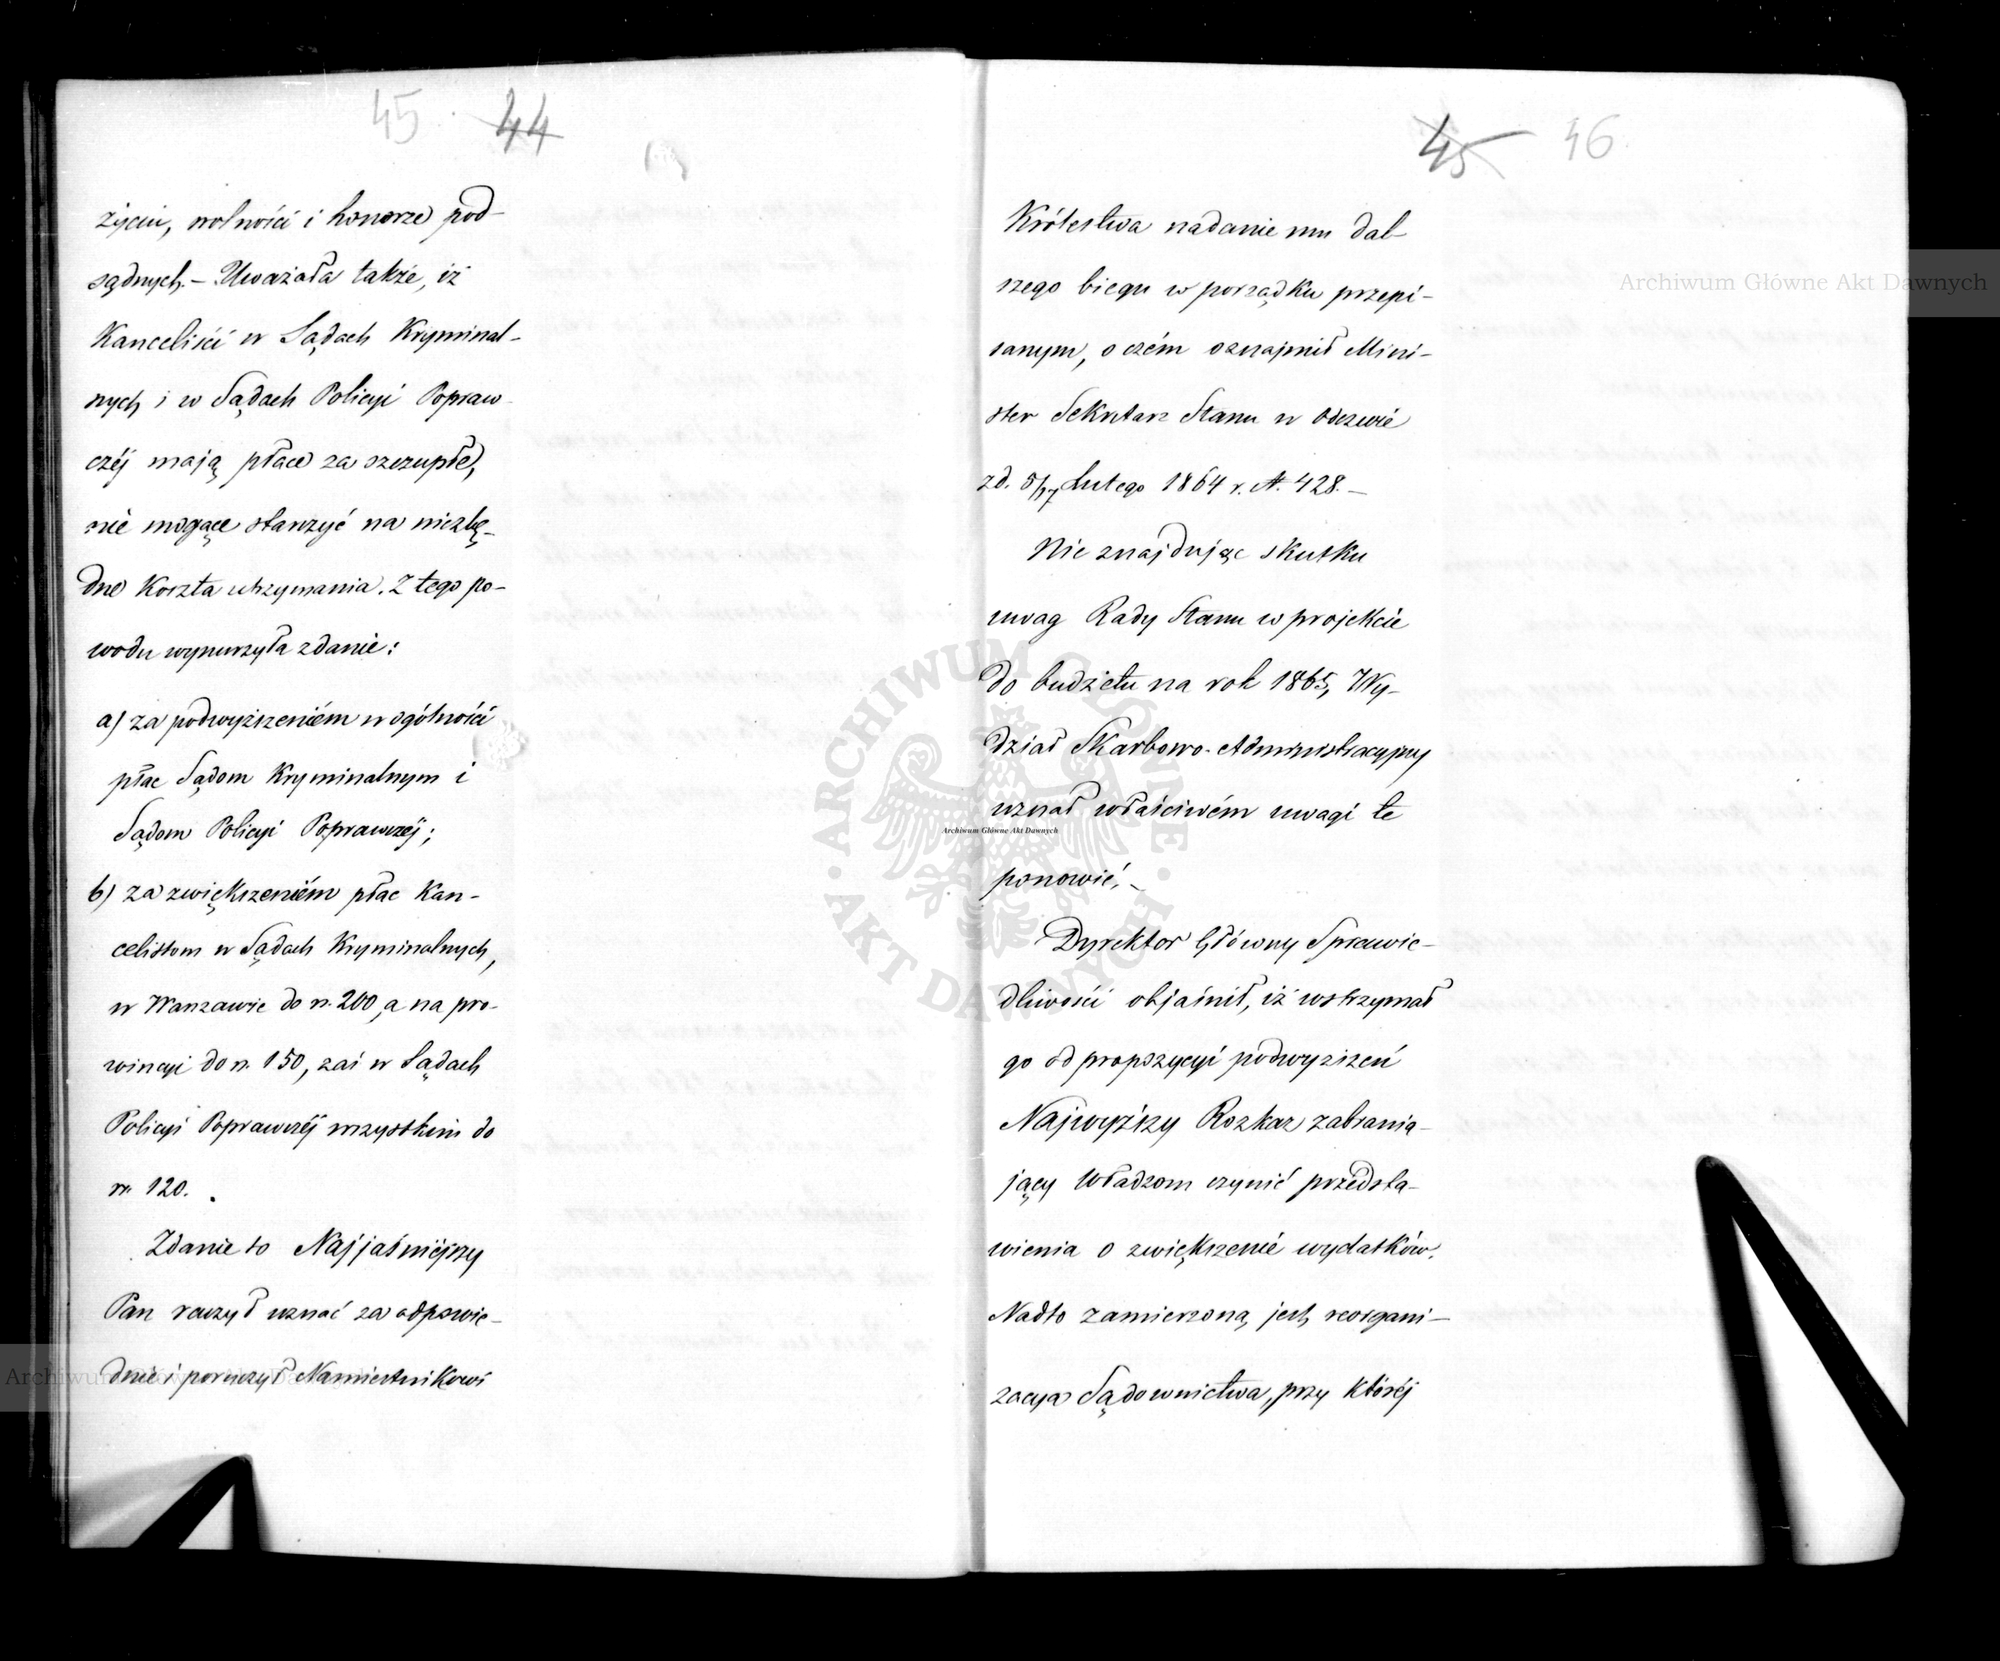 45 44
życiu, wolności i honorze pod-
sądnych. — Uważała także, iż
Kanceliści w Sądach Kryminal-
nych i w Sądach Policyi Popraw-
czéj mają płace za szczupłe,
nie mogące starczyć na niezbę-
dne koszta utrzymania. Z tego po-
wodu wynurzyła zdanie:
a) za podwyższeniém w ogólności
płac Sądom Kryminalnym i
Sądom Policyi Poprawczéj;
b) za zwiększeniém płac Kan-
celistom w Sądach Kryminalnych,
w Warszawie do r. 200, a na pro-
wincyi do r. 150, zaś w Sądach
Policyi Poprawczéj wszystkim do
r. 120.
Zdanie to Najjaśniéjszy
Pan raczył uznać za odpowie-
dnie i poruczył Namiestnikowi
45 46
Królestwa nadanie mu dal-
szego biegu w porządku przepi-
sanym, o czém oznajmił Mini-
ster Sekretarz Stanu w Odezwie
z d. 5/17 Lutego 1864 r. N. 428. —
Nie znajdując skutku
uwag Rady Stanu w projekcie
do budżetu na rok 1865, Wy-
dział Skarbowo-Administracyjny
uznał właściwém uwagi te
ponowić. —
Dyrektor Główny Sprawie-
dliwości objaśnił, iż wstrzymał
go od propozycyi podwyższeń
Najwyższy Rozkaz zabrania-
jący Władzom czynić przedsta-
wienia o zwiększenie wydatków.
Nadto zamierzoną jest reorgani-
zacya Sądownictwa, przy któréj
Archiwum Główne Akt Dawnych
ARCHIWUM GŁÓWNE AKT DAWNYCH
Archiwum Główne Akt Dawnych